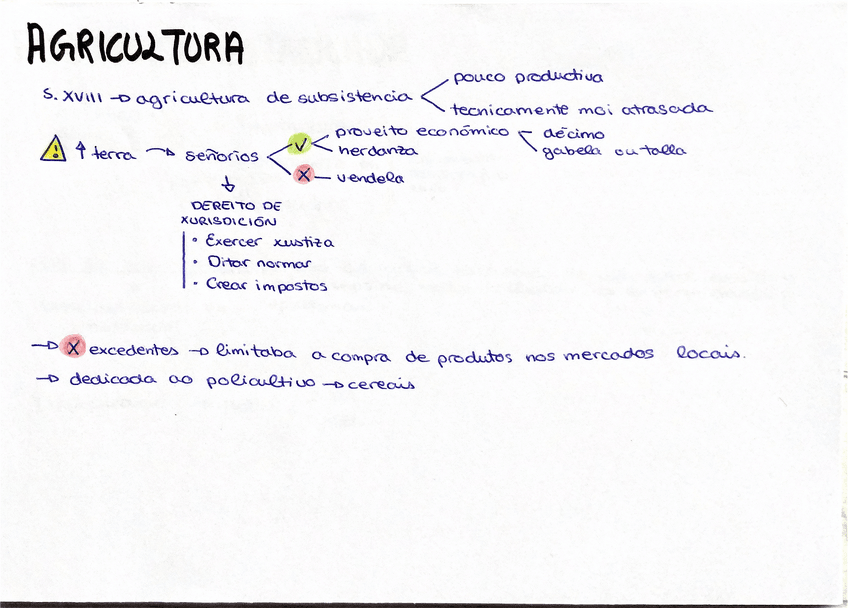 AGRICULTURA
S. XVIII → agricultura de subsistencia
pouco productiva
tecnicamente moi atrasada
⚠ ↑ terra → señorios
✓ proveito económico
décimo
gabela ou talla
herdanza
X — vendela
↓
DEREITO DE
XURISDICIÓN
• Exercer xustiza
• Ditar normar
• Crear impostos
→ X excedentes → limitaba a compra de produtos nos mercados locais.
→ dedicada ao policultivo → cereais